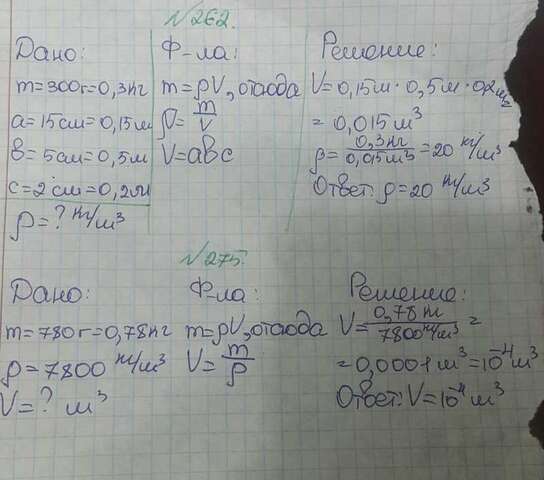 №262.
Дано:
m=300г=0,3кг
a=15см=0,15м
в=5см=0,5м
c=2см=0,2м
ρ=? кг/м³
Ф-ла:
m=ρV, отсюда
ρ=m/V
V=abc
Решение:
V=0,15м·0,5м·0,2м=
=0,015м³
ρ=0,3кг/0,015м³=20 кг/м³
Ответ: ρ=20 кг/м³
№275.
Дано:
m=780г=0,78кг
ρ=7800 кг/м³
V=? м³
Ф-ла:
m=ρV, отсюда
V=m/ρ
Решение:
V=0,78кг/7800кг/м³=
=0,0001 м³=10⁻⁴м³
Ответ: V=10⁻⁴м³